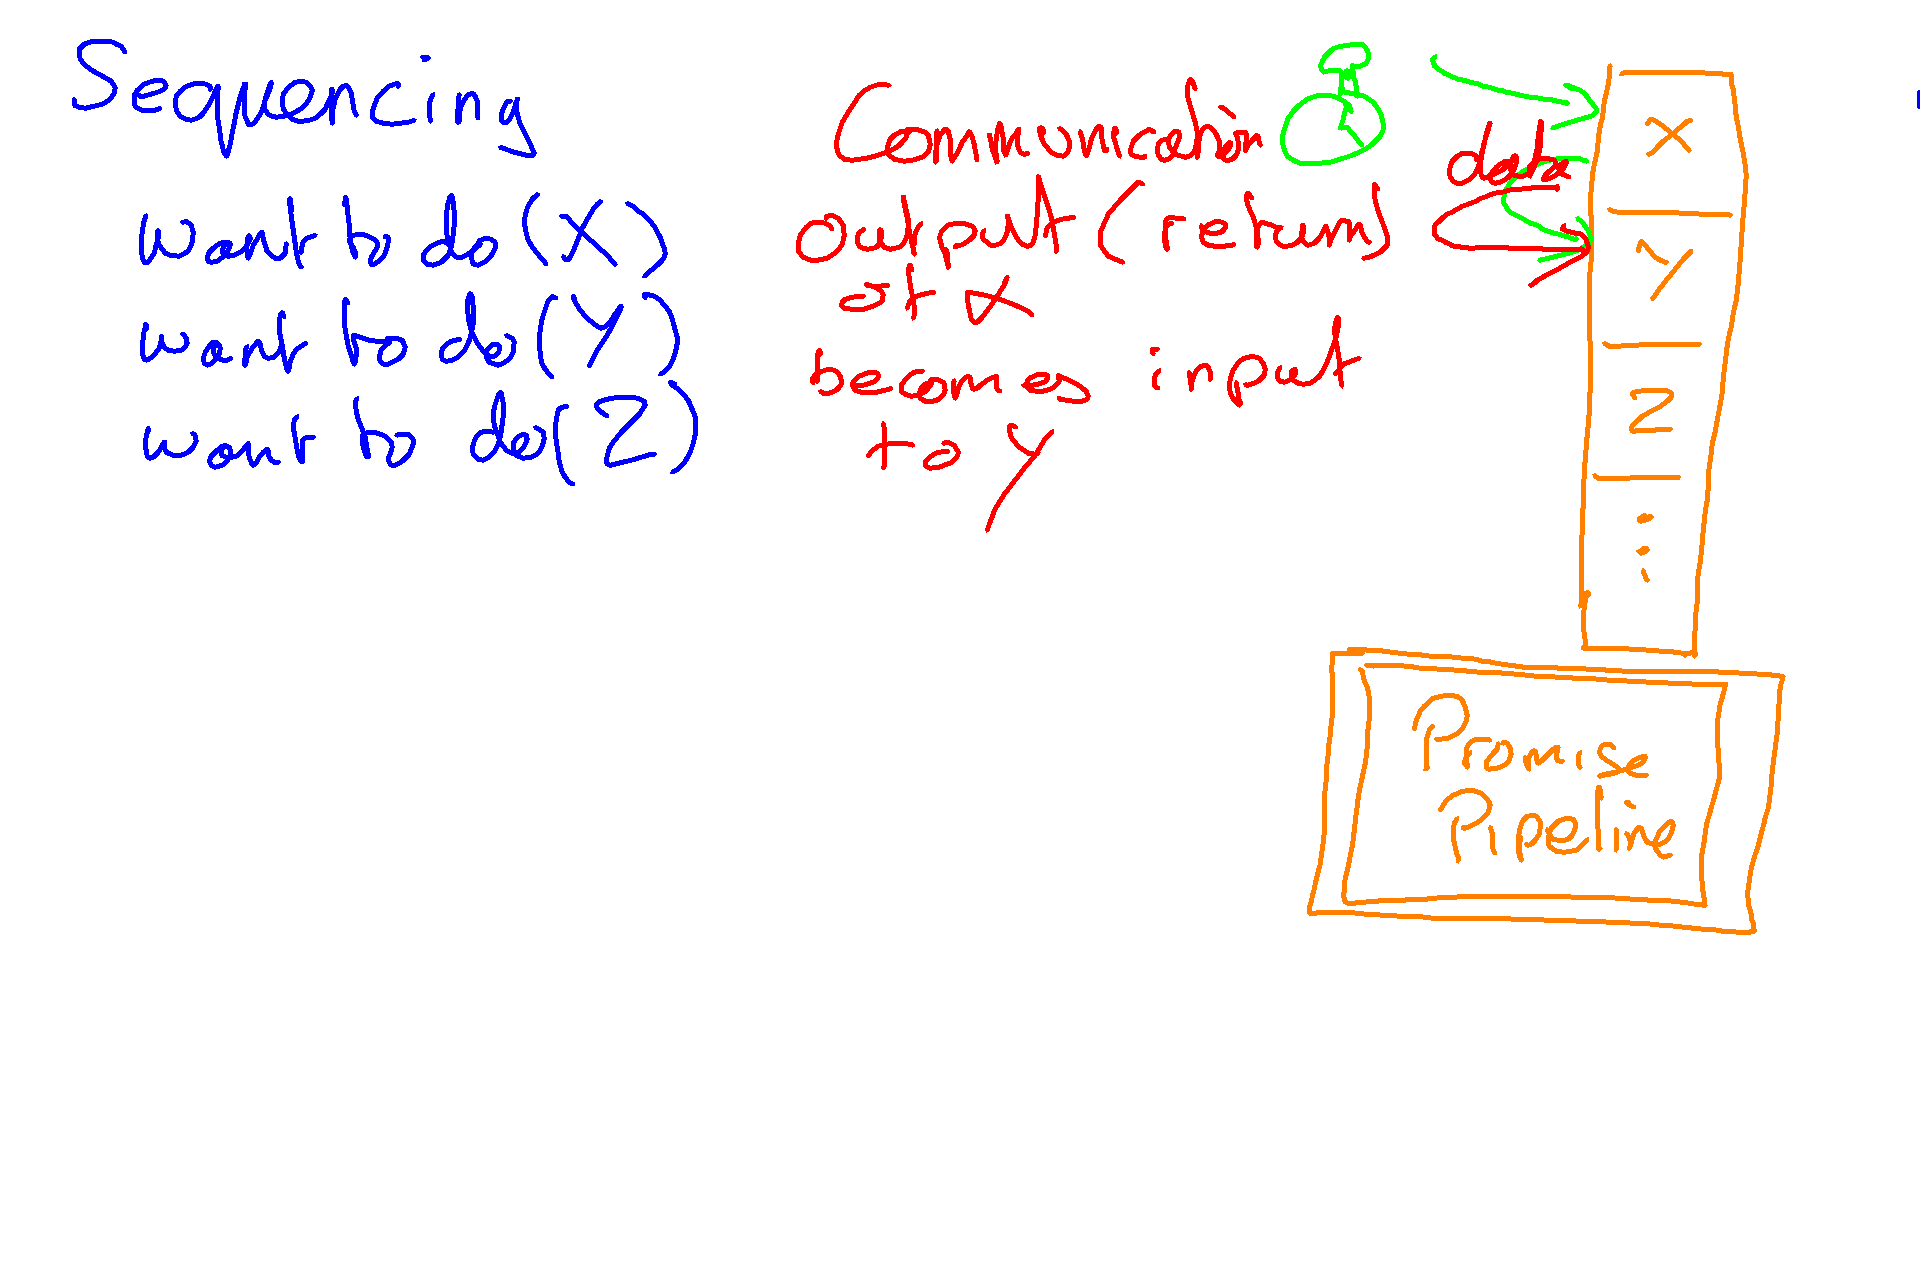 Sequencing
want to do (X)
want to do (Y)
want to do (Z)
Communication
output (return)
of X
becomes input
to Y
data
X
Y
Z
Promise
Pipeline